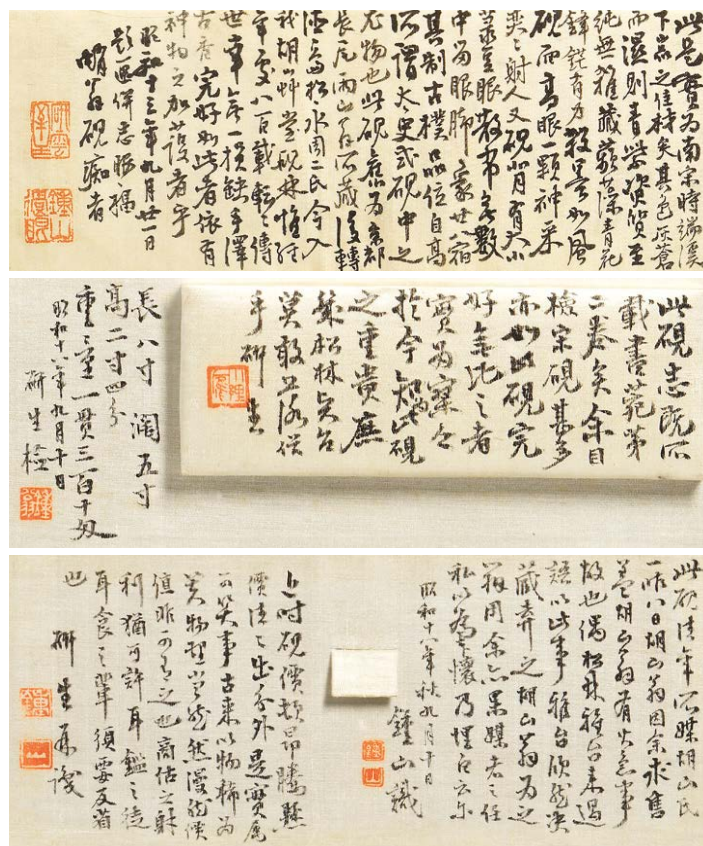 此是實為南宋時端溪
下岩之佳材矣其色灰蒼
而濕則青紫資質至
純無一雜藏蘋藻青花
鋒鋩有力殺墨如風
硯面高眼一顆神采
奕々射人又硯背有大小
柱眼散布無數
中當眼脚象廿八宿
其制古樸品位自高
所謂太史式硯中之
尤物也此硯應為京都
長尾雨山翁所藏後轉
今入
我胡山艸堂硯庫惟經
年實八百載轉々傳
世幸無一損缺手澤
古香完好如此者依有
神物之加護者乎
昭和十三年九月廿一日
題匣併志眼福
硯痴者
此硯志既所
載書范第
二卷矣余目
檢宋硯甚多
亦如此硯完
好無比之者
實為寥々
於今知此硯
之重貴庶
幾松林矣台
莫敢
乎研生
長八寸 濶五寸
高二寸四分
重量一貫三百十匁
昭和十六年九月十日
研生檢
此硯往年所媒胡山氏
一昨八日胡山翁因余求售
蓋胡山翁有大急事
故也偶松林雅台來過
語以此事雅台欣然決
藏弆之胡山翁為之
解困余亦果媒者之任
私以為慰懷乃埋白云尔
昭和十六年秋九月十日
鍾山識
近時硯價頓昂騰懸
價往々出分外是實属
可笑事古來以物稀為
美物理当然然漫然價
值昨可有之也商估之射
利猶可許耳鑑之徒
耳食之輩須要反省
也
研生再識